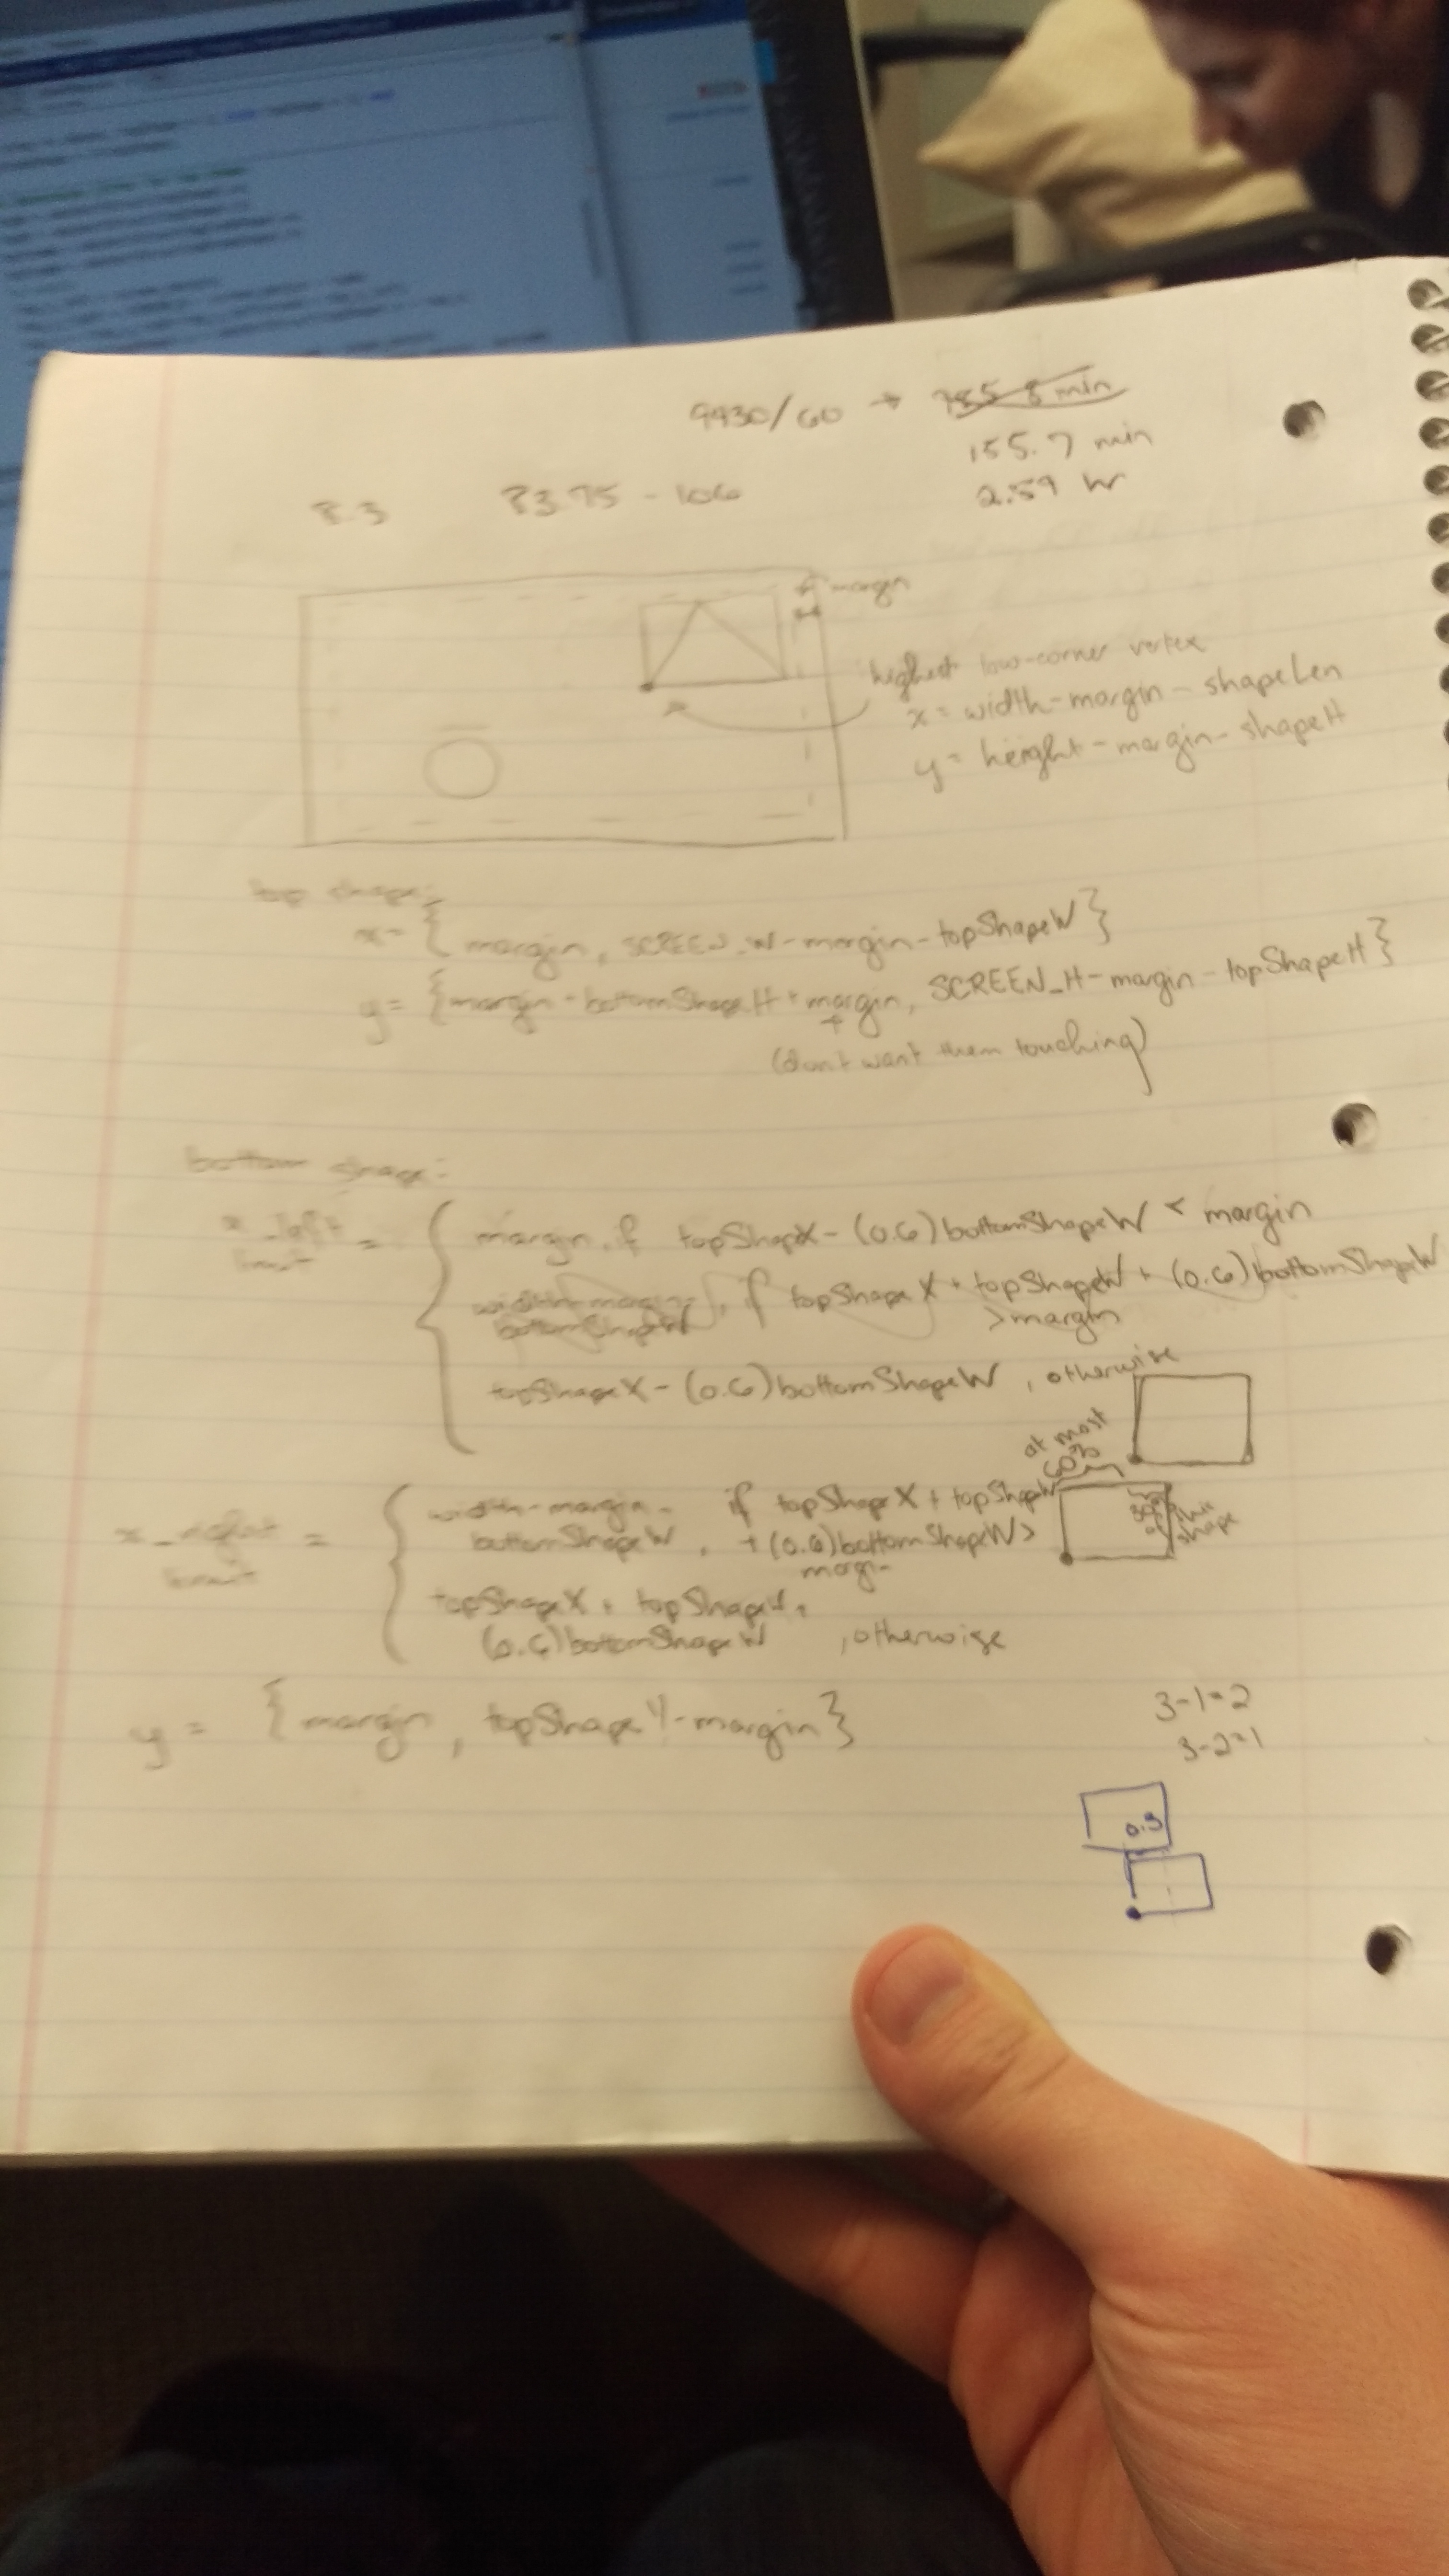 9930/60 → 785.8 min
155.7 min
8.3 83.75 - 106 2.59 hr
margin
highest low-corner vertex
x = width - margin - shapeLen
y = height - margin - shapeH
top shape:
x = { margin, SCREEN_W - margin - topShapeW }
y = { margin + bottomShapeH + margin, SCREEN_H - margin - topShapeH }
(don't want them touching)
bottom shape:
x_left limit =
margin if topShapeX - (0.6)bottomShapeW < margin
width - margin - bottomShapeW, if topShapeX + topShapeW + (0.6)bottomShapeW
> margin
topShapeX - (0.6)bottomShapeW , otherwise
at most
60%
x_right limit =
width - margin - if topShapeX + topShapeW
bottomShapeW , + (0.6)bottomShapeW >
margin
this shape
topShapeX + topShapeW +
(0.6)bottomShapeW , otherwise
y = { margin, topShapeY - margin }
3-1=2
3-2=1